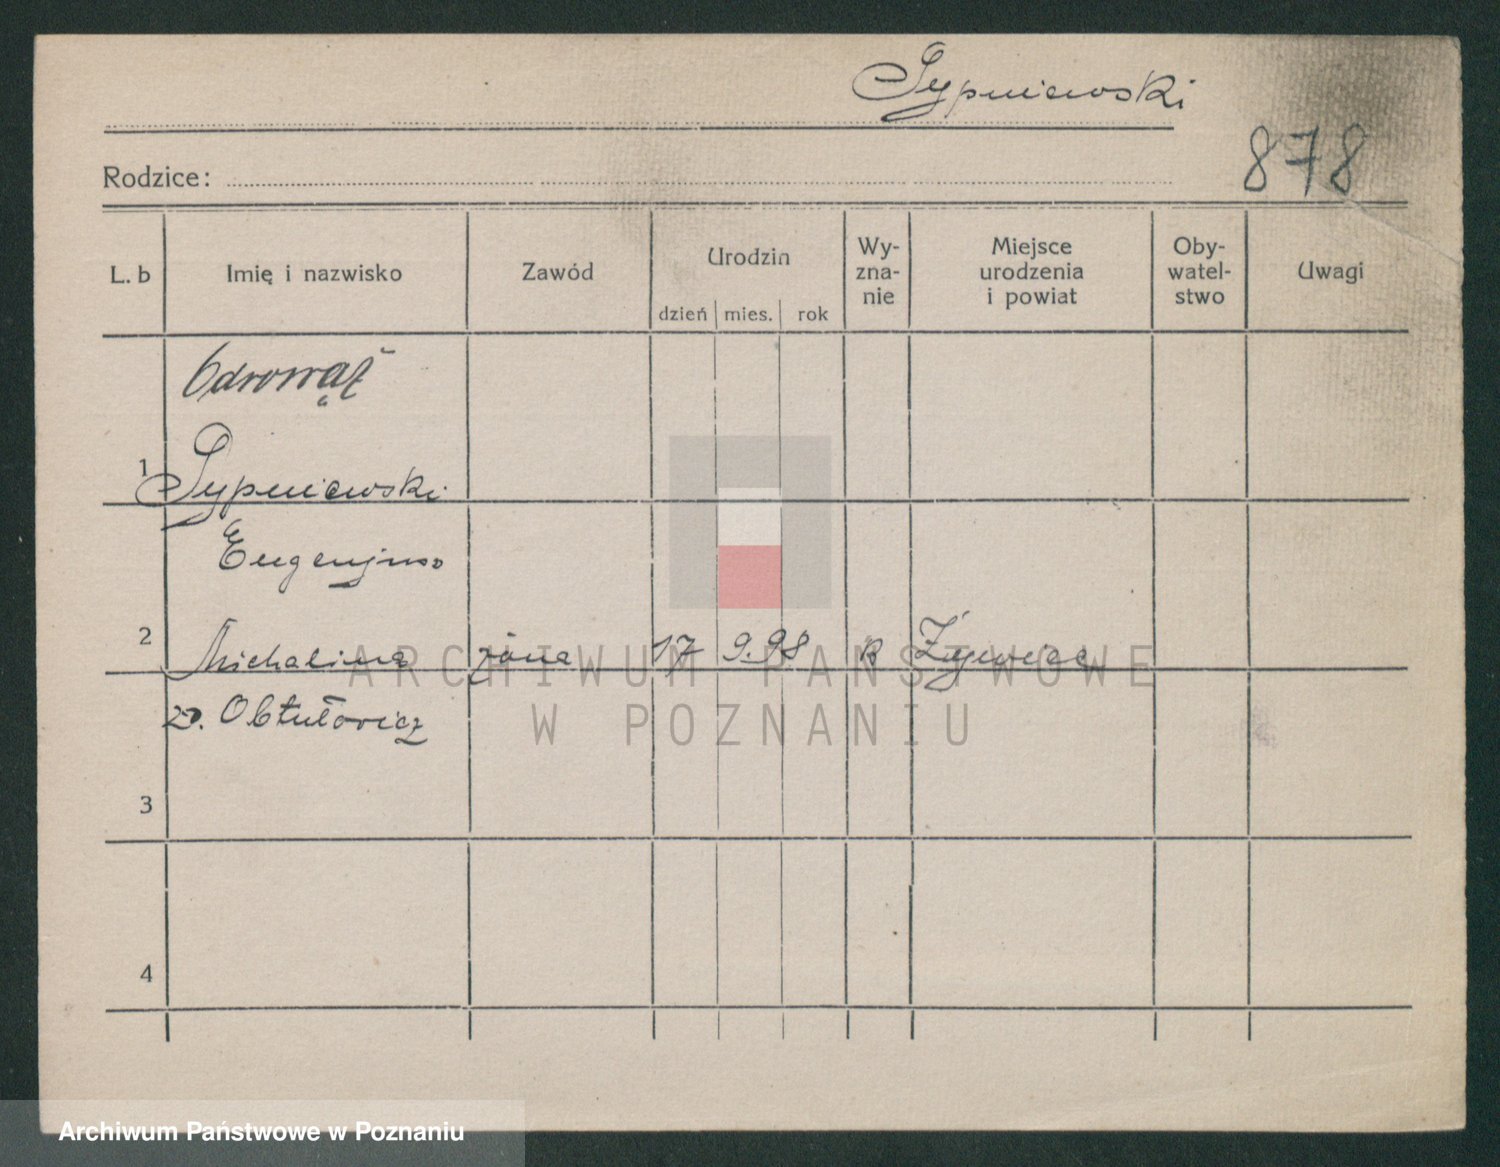 Sypniewski
878
Rodzice:
L. b
Imię i nazwisko
Zawód
Urodzin
dzień mies. rok
Wy-
zna-
nie
Miejsce
urodzenia
i powiat
Oby-
watel-
stwo
Uwagi
Odrowąż
1 Sypniewski
Eugenjusz
2 Michalina żona 17 9.98 R Żywiec
zd. Obtułowicz
3
4
ARCHIWUM PAŃSTWOWE
W POZNANIU
Archiwum Państwowe w Poznaniu